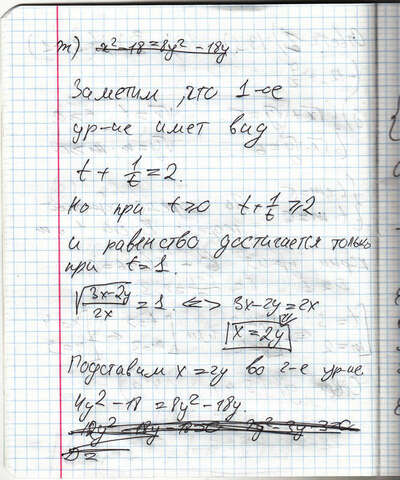 ж) x² - 18 = 8y² - 18y
Заметим, что 1-ое
ур-ие имет вид
t + 1/t = 2.
Но при t ≥ 0 t + 1/t ≥ 2.
и равенство достигается только
при t = 1.
√((3x-2y)/2x) = 1. <=> 3x - 2y = 2x
x = 2y
Подставим x = 2y во 2-е ур-ие
4y² - 18 = 8y² - 18y.
D =